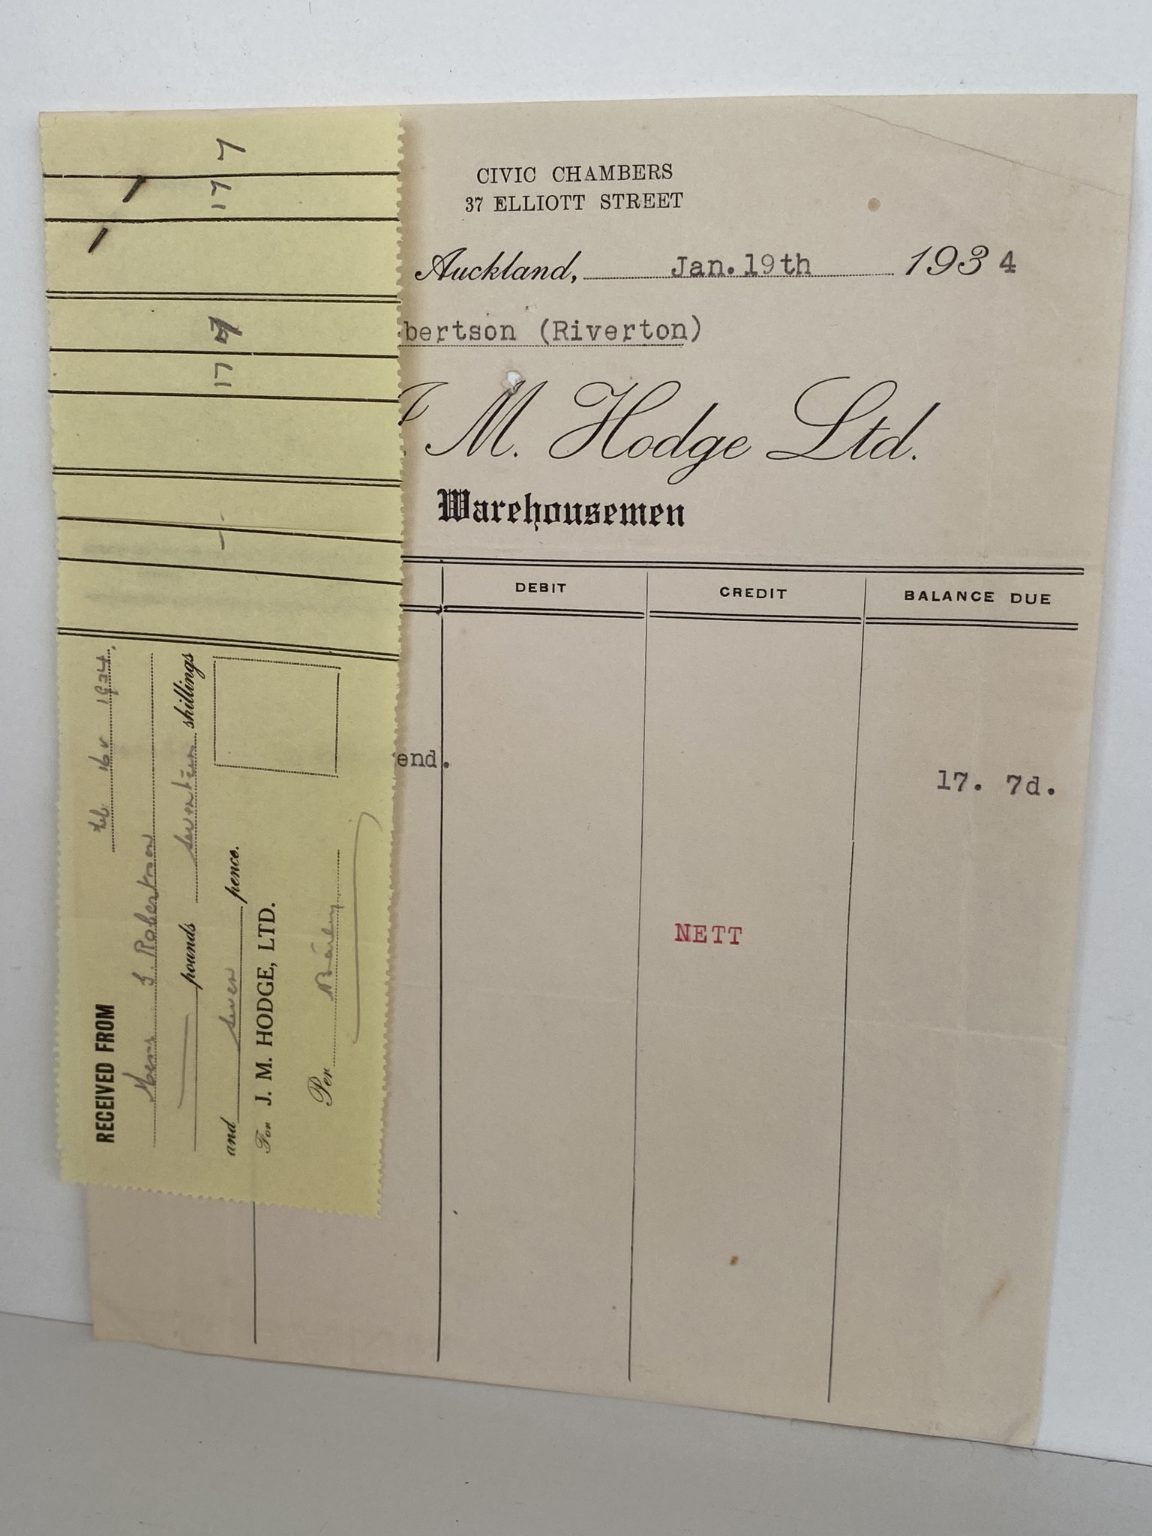 CIVIC CHAMBERS
37 ELLIOTT STREET
Auckland, Jan. 19th 1934
bertson (Riverton)
M. Hodge Ltd.
Warehousemen
DEBIT CREDIT BALANCE DUE
end. 17. 7d.
NETT
17 7
17 7
RECEIVED FROM 16 1934
Robertson
pounds seventeen shillings
and seven pence.
For J. M. HODGE, LTD.
Per